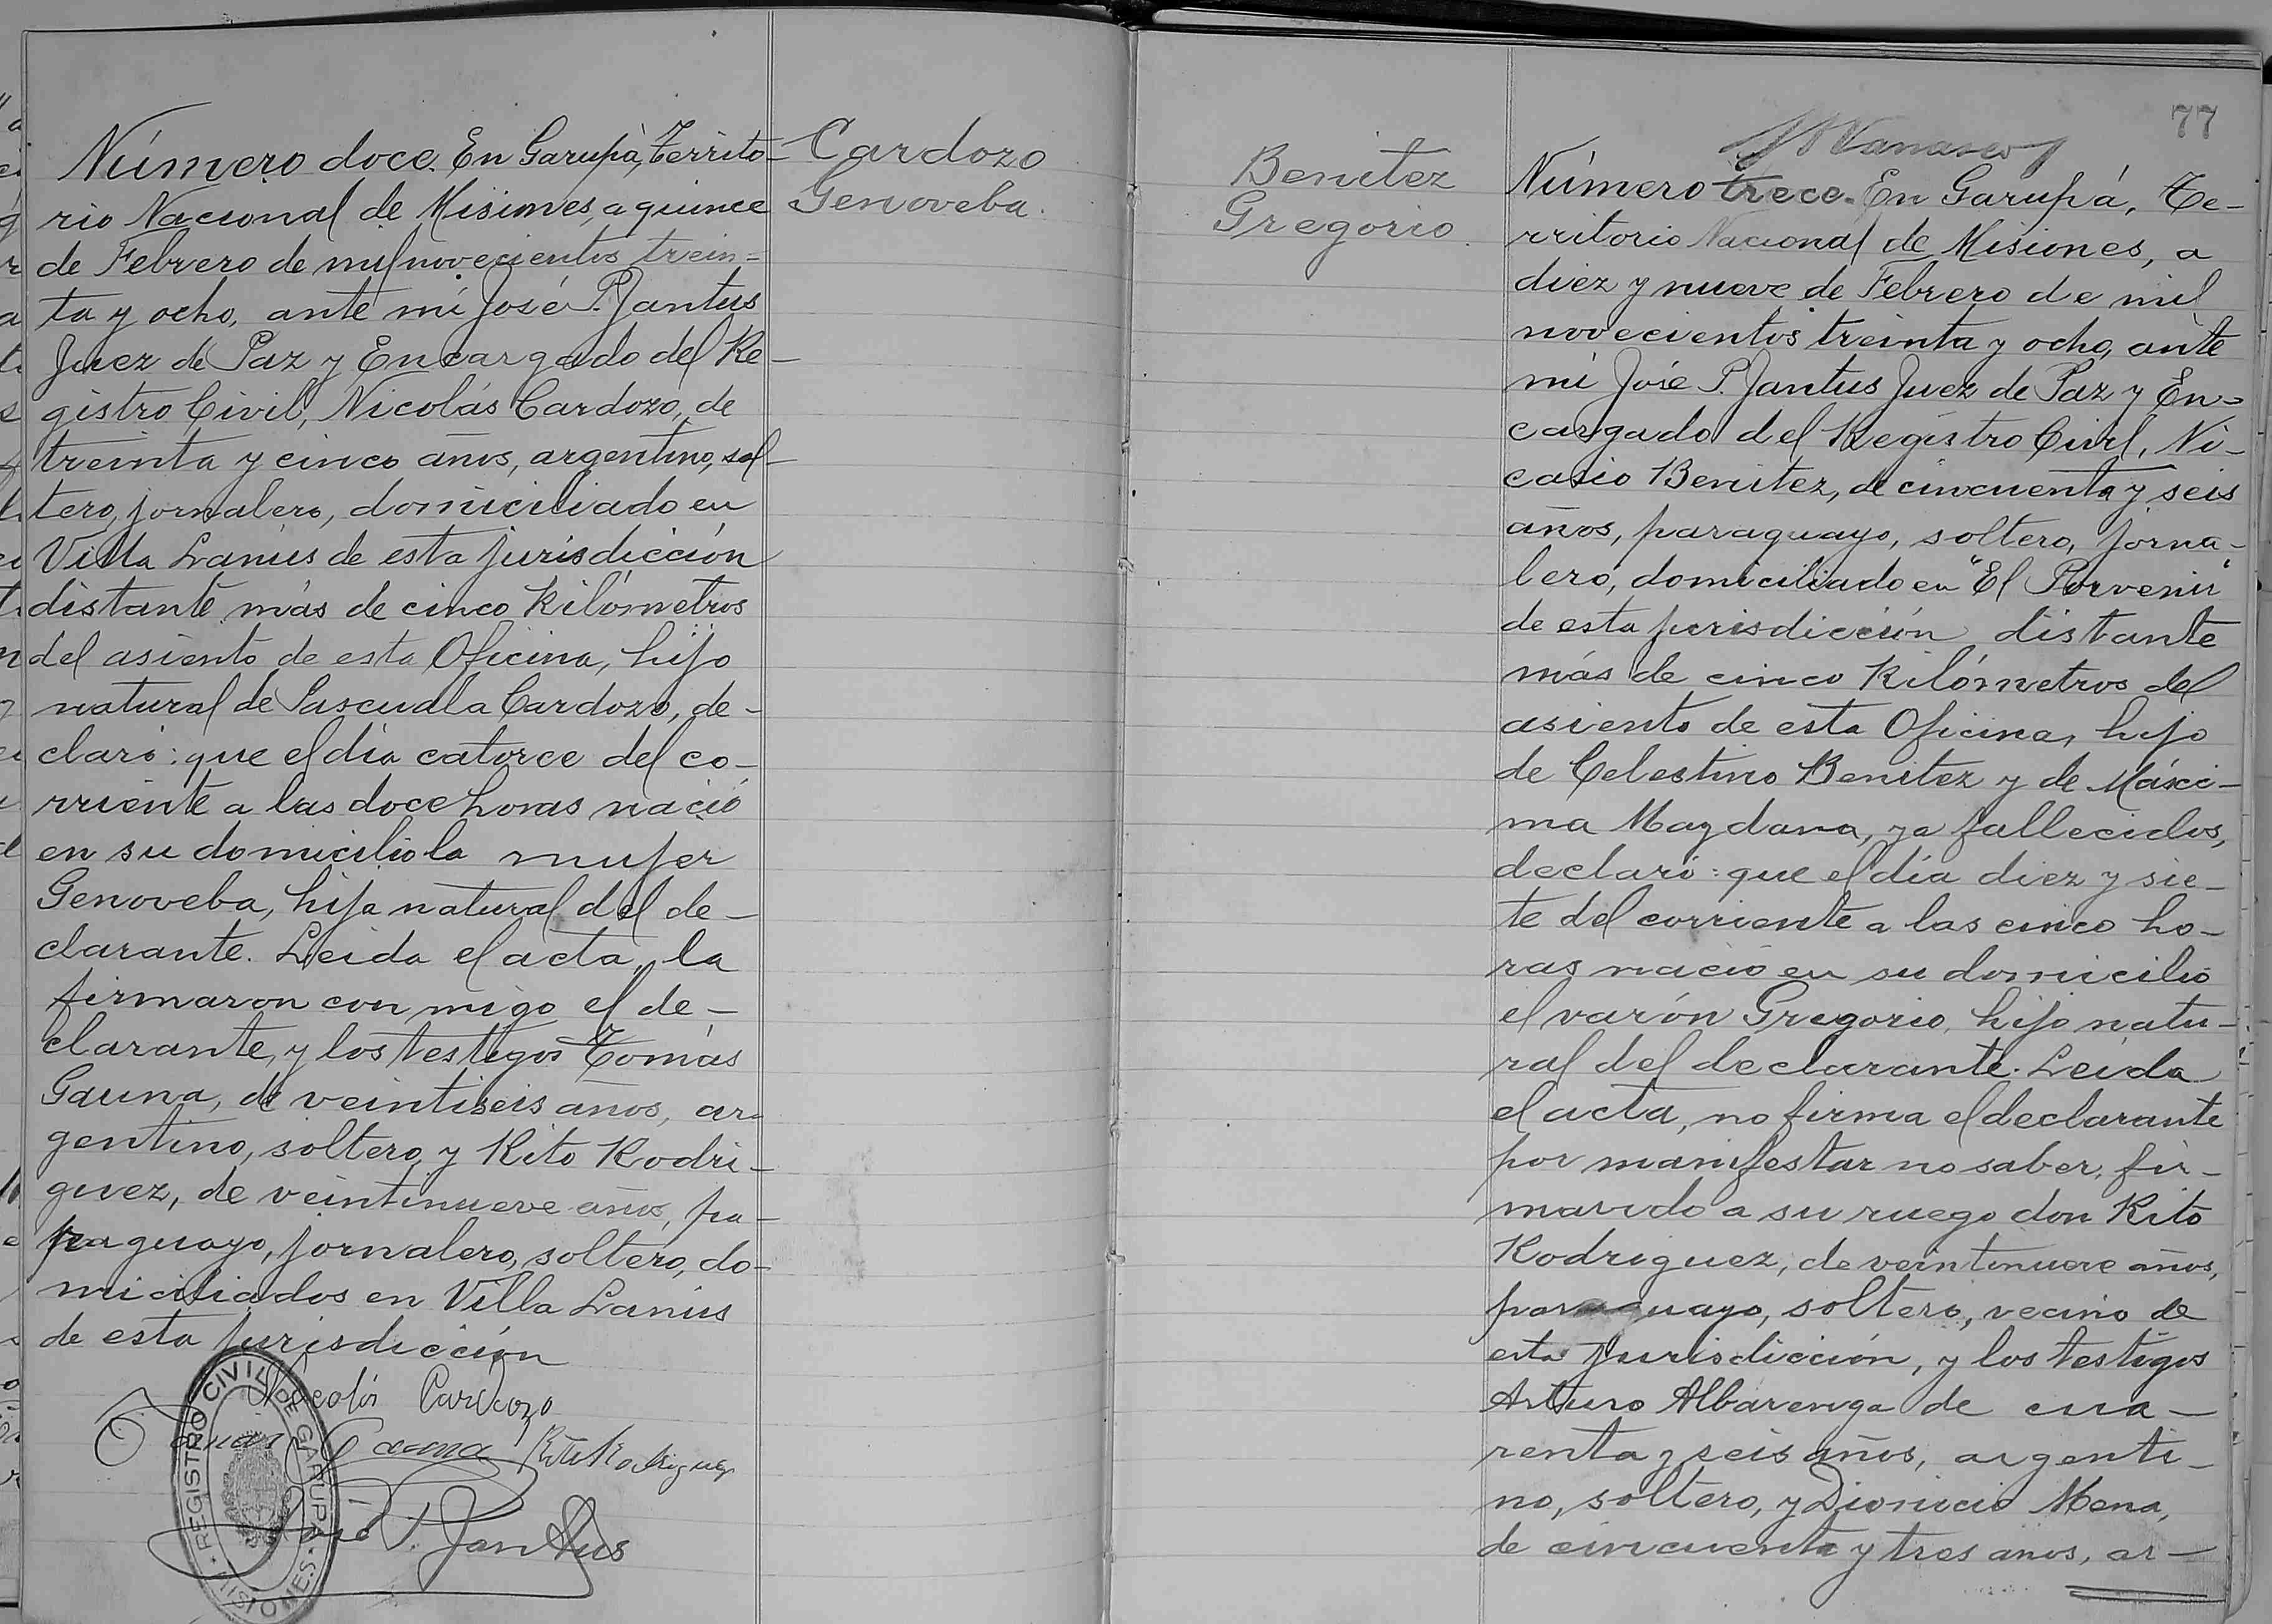 Número doce. En Garupá, Territo-
rio Nacional de Misiones, a quince
de Febrero de mil novecientos trein-
ta y ocho, ante mi José P. Jantus
Juez de Paz y Encargado del Re-
gistro Civil, Nicolás Cardozo, de
treinta y cinco años, argentino, sol-
tero, jornalero, domiciliado en
Villa Lanús de esta jurisdicción
distante más de cinco Kilómetros
del asiento de esta Oficina, hijo
natural de Pascuala Cardozo, de-
claró: que el día catorce del co-
rriente a las doce horas nació
en su domicilio la mujer
Genoveba, hija natural del de-
clarante. Leida el acta, la
firmaron con migo el de-
clarante, y los testigos Tomás
Gauna, de veintiseis años, ar-
gentino, soltero, y Rito Rodri-
guez, de veintinueve años, pa-
raguayo, jornalero, soltero, do-
miciliados en Villa Lanús
de esta jurisdicción
Nicolás Cardozo
Gauna Rito Rodriguez
José P. Jantus
REGISTRO CIVIL DE GARUPA · MISIONES ·
Cardozo
Genoveba.
Benitez
Gregorio.
77
Número trece. En Garupá, Te-
rritorio Nacional de Misiones, a
diez y nueve de Febrero de mil
novecientos treinta y ocho, ante
mi José P. Jantus Juez de Paz y En-
cargado del Registro Civil, Ni-
casio Benitez, de cincuenta y seis
años, paraguayo, soltero, jorna-
lero, domiciliado en "El Porvenir"
de esta jurisdicción distante
más de cinco Kilómetros del
asiento de esta Oficina, hijo
de Celestino Benitez y de Másci-
ma Magdana, ya fallecidos,
declaró: que el día diez y sie-
te del corriente a las cinco ho-
ras nació en su domicilio
el varón Gregorio, hijo natu-
ral del declarante. Leida
el acta, no firma el declarante
por manifestar no saber, fir-
mando a su ruego don Rito
Rodriguez, de veintinueve años,
paraguayo, soltero, vecino de
esta jurisdicción, y los testigos
Arturo Albarenga de cua-
renta y seis años, argenti-
no, soltero, y Dionicio Mena,
de cincuenta y tres años, ar-